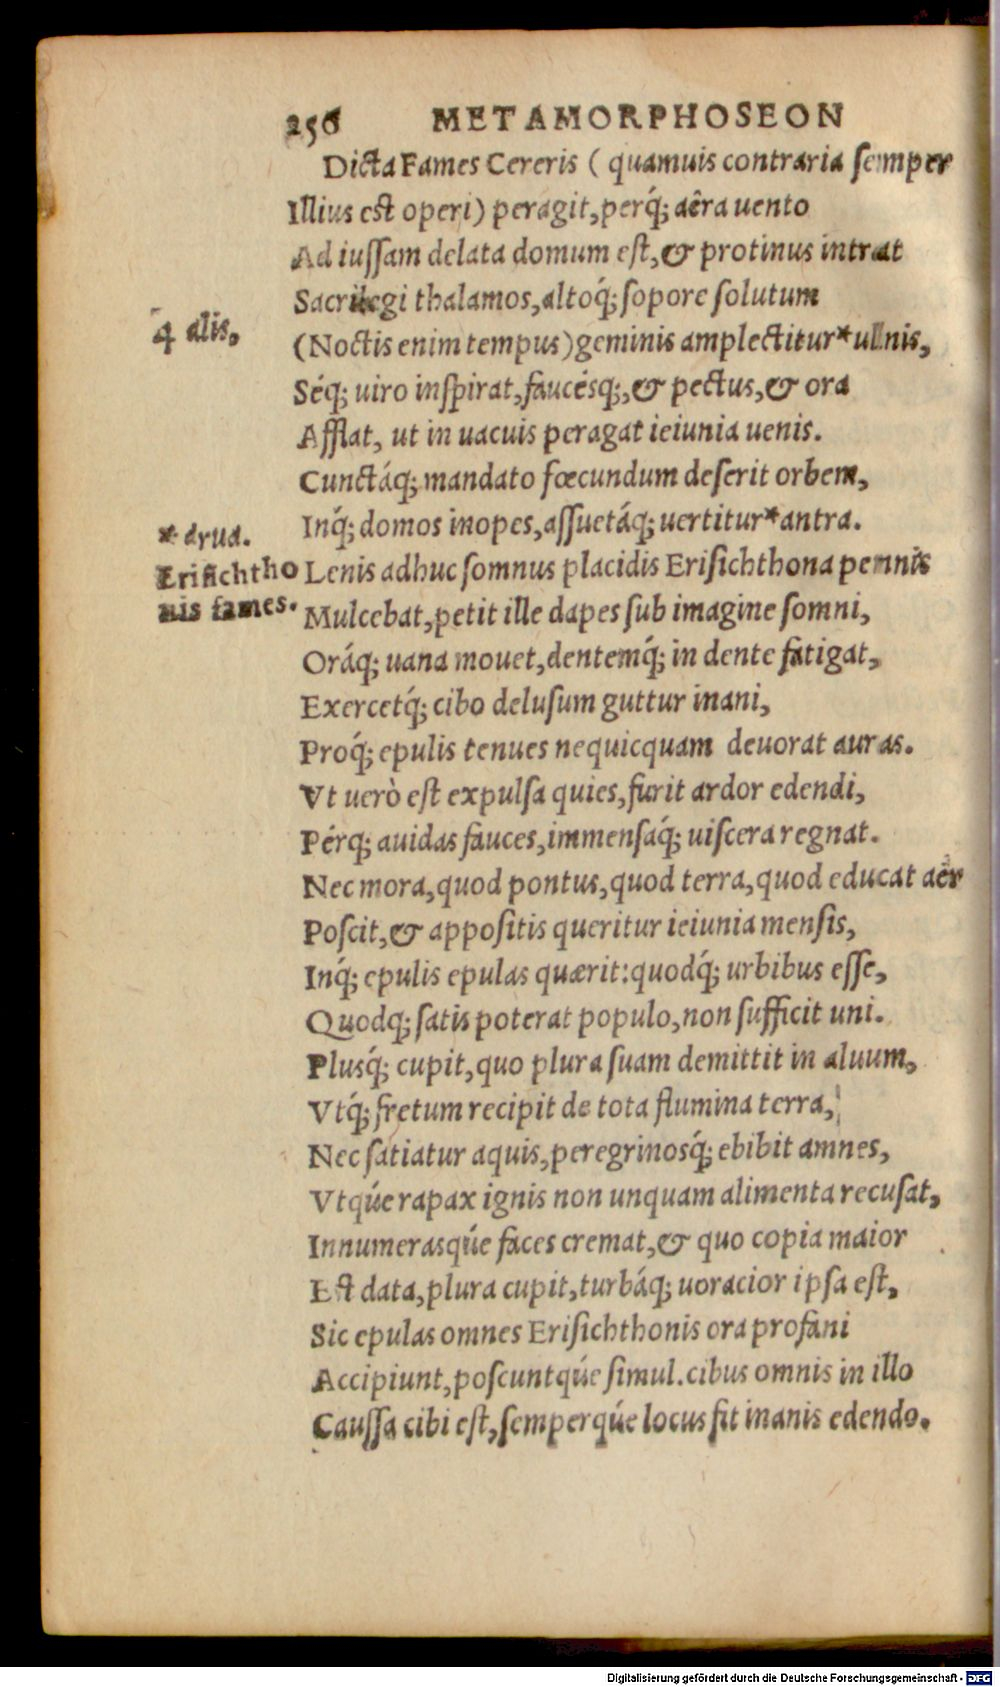 256 METAMORPHOSEON
Dicta Fames Cereris ( quamuis contraria semper
Illius est operi) peragit, perq́; aêra uento
Ad iussam delata domum est, & protinus intrat
Sacrilegi thalamos, altoq́; sopore solutum
4 alis,
(Noctis enim tempus) geminis amplectitur * ulnis,
Séq; uiro inspirat, faucésq;, & pectus, & ora
Afflat, ut in uacuis peragat ieiunia uenis.
Cunctáq; mandato fœcundum deserit orbem,
Inq́; domos inopes, assuetáq; uertitur * antra.
* arua.
Erisichtho
nis fames.
Lenis adhuc somnus placidis Erisichthona pennis
Mulcebat, petit ille dapes sub imagine somni,
Oráq; uana mouet, dentemq́; in dente fatigat,
Exercetq́; cibo delusum guttur inani,
Proq́; epulis tenues nequicquam deuorat auras.
Vt uerò est expulsa quies, furit ardor edendi,
Pérq; auidas fauces, immensaq́; uiscera regnat.
Nec mora, quod pontus, quod terra, quod educat aêr
Poscit, & appositis queritur ieiunia mensis,
Inq́; epulis epulas quærit: quodq́; urbibus esse,
Quodq; satis poterat populo, non sufficit uni.
Plusq́; cupit, quo plura suam demittit in aluum,
Vtq́; fretum recipit de tota flumina terra,
Nec satiatur aquis, peregrinosq́; ebibit amnes,
Vtq́ue rapax ignis non unquam alimenta recusat,
Innumerasq́ue faces cremat, & quo copia maior
Est data, plura cupit, turbáq; uoracior ipsa est,
Sic epulas omnes Erisichthonis ora profani
Accipiunt, poscuntq́ue simul. cibus omnis in illo
Caussa cibi est, semperq́ue locus fit inanis edendo.
Digitalisierung gefördert durch die Deutsche Forschungsgemeinschaft - DFG